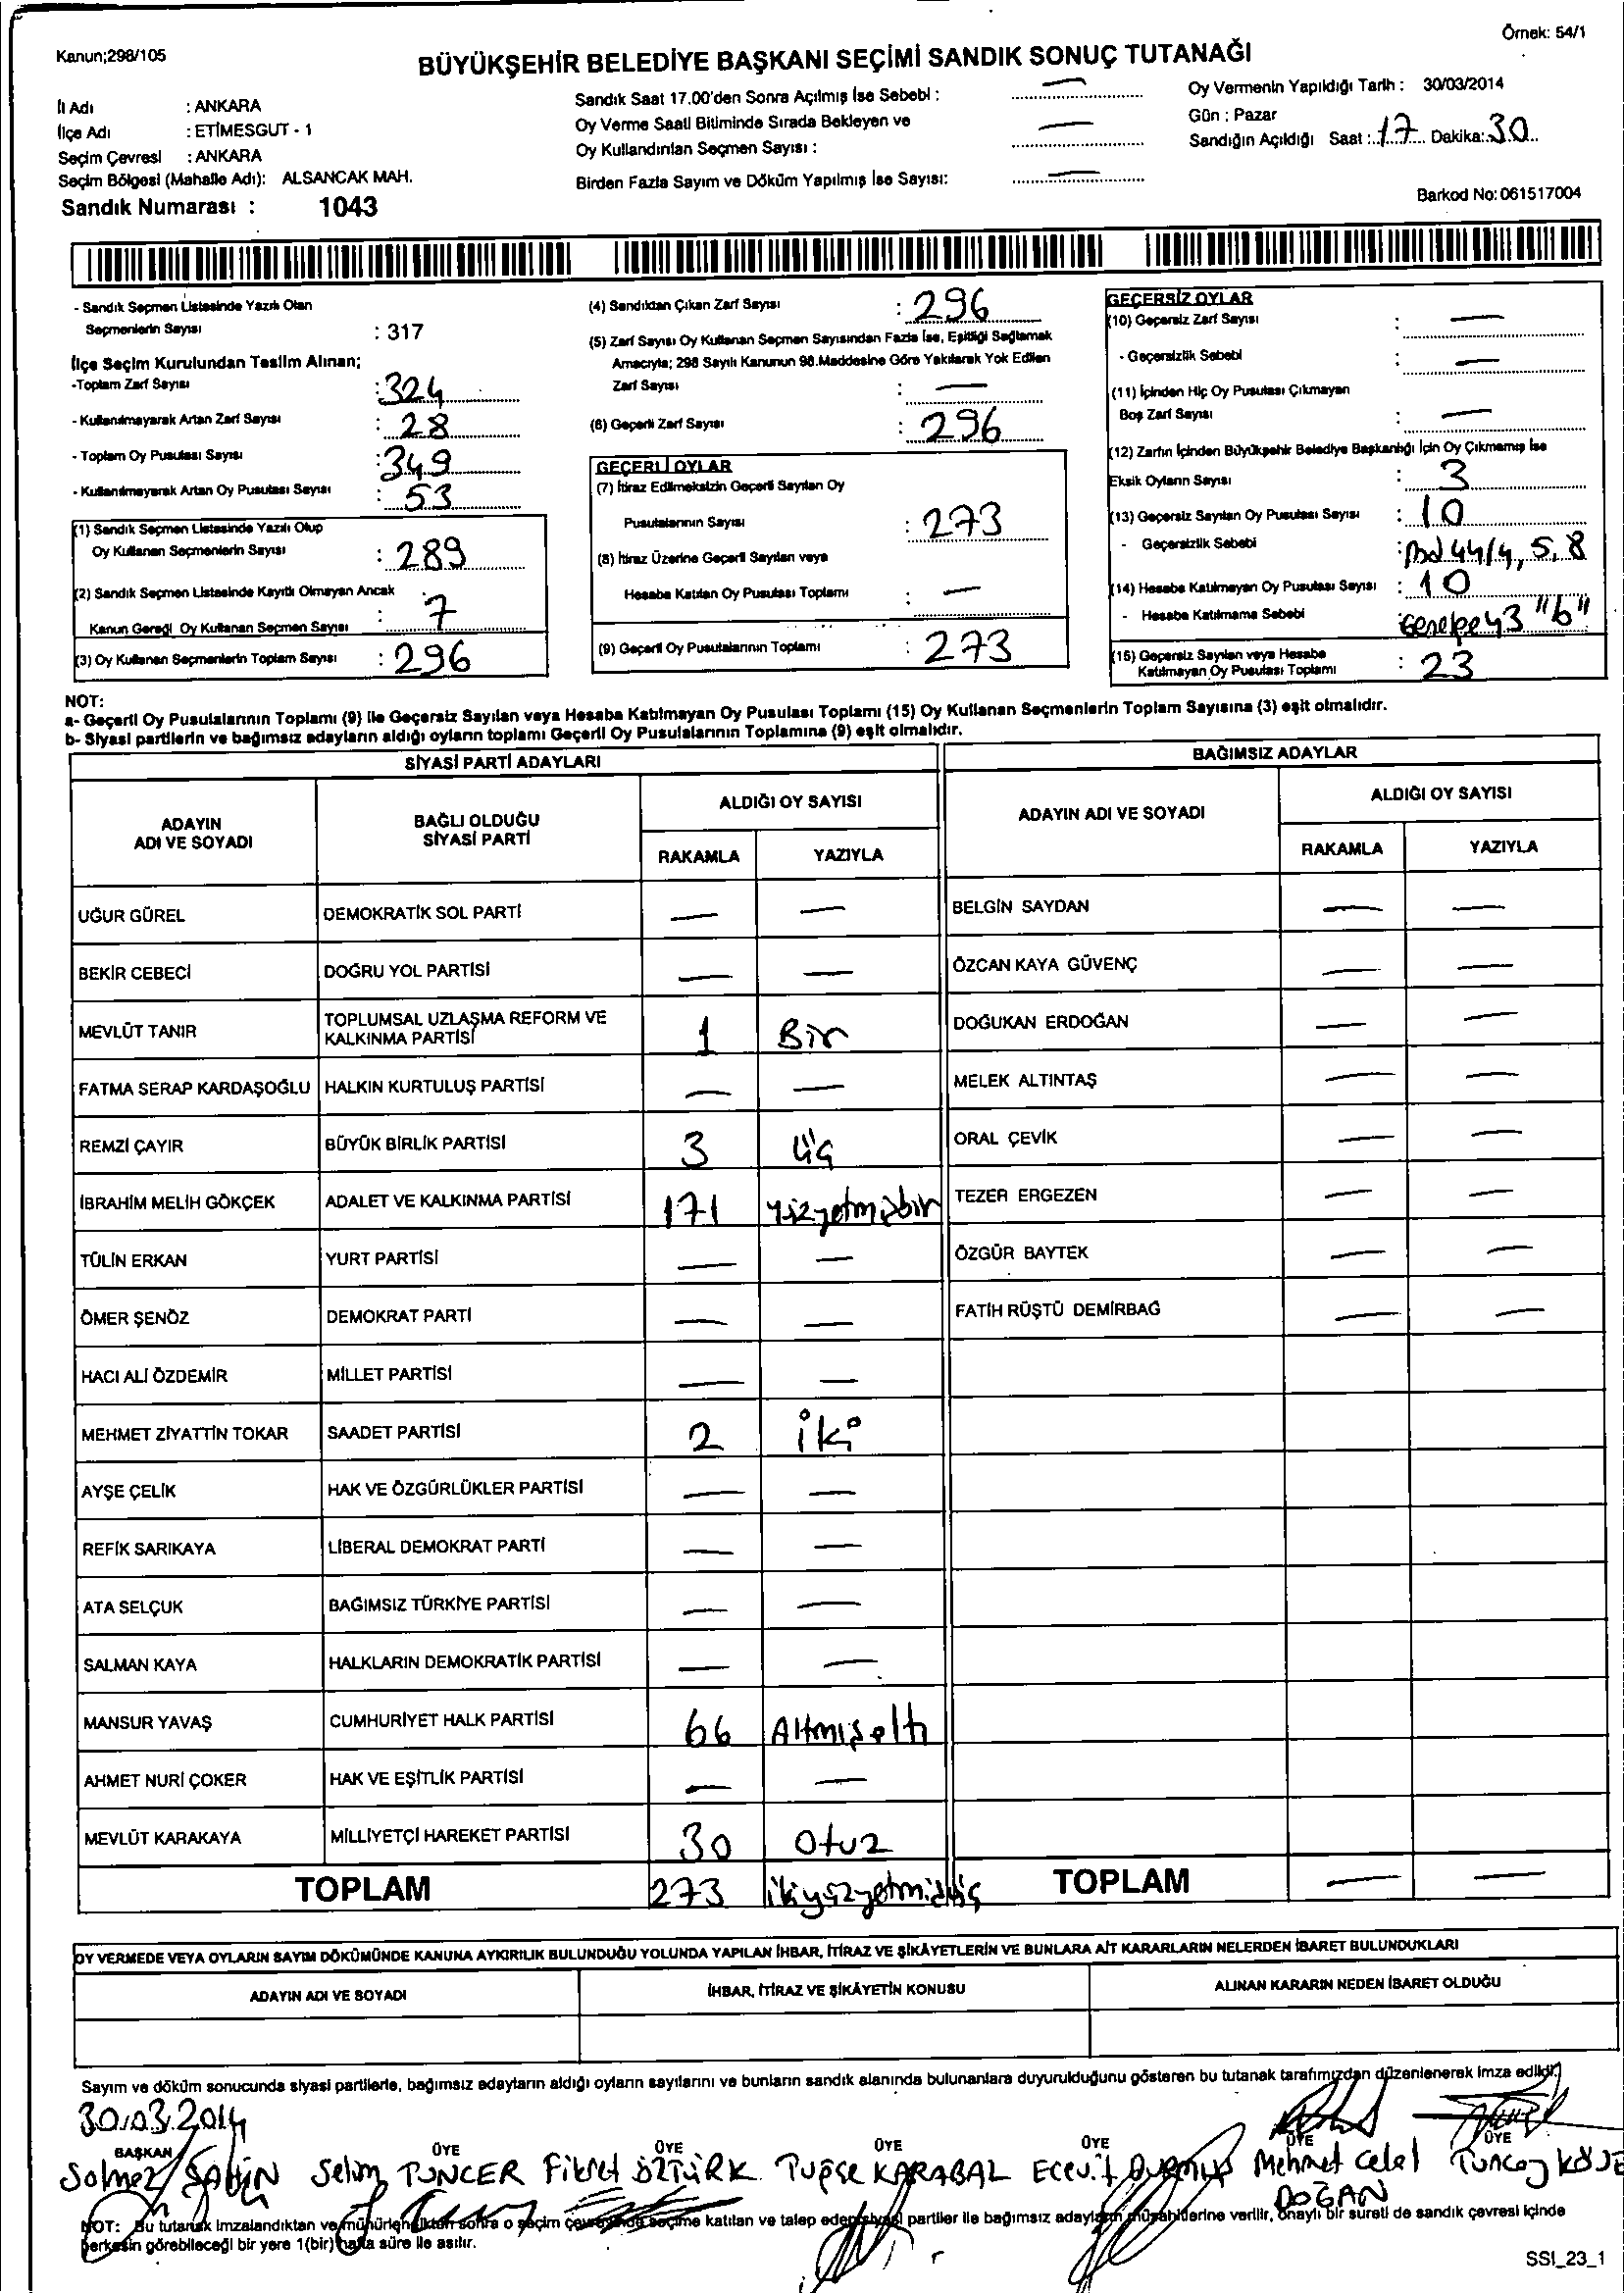 Örnek: 54/1
Kanun;298/105
BÜYÜKŞEHİR BELEDİYE BAŞKANI SEÇİMİ SANDIK SONUÇ TUTANAĞI
İl Adı : ANKARA
İlçe Adı : ETİMESGUT - 1
Seçim Çevresi : ANKARA
Seçim Bölgesi (Mahalle Adı): ALSANCAK MAH.
Sandık Numarası : 1043
Sandık Saat 17.00'den Sonra Açılmış İse Sebebi : —
Oy Verme Saati Bitiminde Sırada Bekleyen ve
Oy Kullandırılan Seçmen Sayısı : —
Birden Fazla Sayım ve Döküm Yapılmış İse Sayısı: —
Oy Vermenin Yapıldığı Tarih : 30/03/2014
Gün : Pazar
Sandığın Açıldığı Saat : 17 Dakika: 30
Barkod No: 061517004
- Sandık Seçmen Listesinde Yazılı Olan
Seçmenlerin Sayısı : 317
İlçe Seçim Kurulundan Teslim Alınan;
-Toplam Zarf Sayısı : 324
- Kullanılmayarak Artan Zarf Sayısı : 28
- Toplam Oy Pusulası Sayısı : 349
- Kullanılmayarak Artan Oy Pusulası Sayısı : 53
(1) Sandık Seçmen Listesinde Yazılı Olup
Oy Kullanan Seçmenlerin Sayısı : 289
(2) Sandık Seçmen Listesinde Kayıtlı Olmayan Ancak
Kanun Gereği Oy Kullanan Seçmen Sayısı : 7
(3) Oy Kullanan Seçmenlerin Toplam Sayısı : 296
(4) Sandıktan Çıkan Zarf Sayısı : 296
(5) Zarf Sayısı Oy Kullanan Seçmen Sayısından Fazla İse, Eşitliği Sağlamak
Amacıyla; 298 Sayılı Kanunun 98.Maddesine Göre Yakılarak Yok Edilen
Zarf Sayısı : —
(6) Geçerli Zarf Sayısı : 296
GEÇERLİ OYLAR
(7) İtiraz Edilmeksizin Geçerli Sayılan Oy
Pusulalarının Sayısı : 273
(8) İtiraz Üzerine Geçerli Sayılan veya
Hesaba Katılan Oy Pusulası Toplamı : —
(9) Geçerli Oy Pusulalarının Toplamı : 273
GEÇERSİZ OYLAR
(10) Geçersiz Zarf Sayısı : —
- Geçersizlik Sebebi : —
(11) İçinden Hiç Oy Pusulası Çıkmayan
Boş Zarf Sayısı : —
(12) Zarfın İçinden Büyükşehir Belediye Başkanlığı İçin Oy Çıkmamış İse
Eksik Oyların Sayısı : 3
(13) Geçersiz Sayılan Oy Pusulası Sayısı : 10
- Geçersizlik Sebebi : 44/4, 5, 8
(14) Hesaba Katılmayan Oy Pusulası Sayısı : 10
- Hesaba Katılmama Sebebi : Genelge 43 "b"
(15) Geçersiz Sayılan veya Hesaba
Katılmayan Oy Pusulası Toplamı : 23
NOT:
a- Geçerli Oy Pusulalarının Toplamı (9) ile Geçersiz Sayılan veya Hesaba Katılmayan Oy Pusulası Toplamı (15) Oy Kullanan Seçmenlerin Toplam Sayısına (3) eşit olmalıdır.
b- Siyasi partilerin ve bağımsız adayların aldığı oyların toplamı Geçerli Oy Pusulalarının Toplamına (9) eşit olmalıdır.
SİYASİ PARTİ ADAYLARI
ADAYIN ADI VE SOYADI BAĞLI OLDUĞU SİYASİ PARTİ ALDIĞI OY SAYISI
RAKAMLA YAZIYLA
UĞUR GÜREL DEMOKRATİK SOL PARTİ — —
BEKİR CEBECİ DOĞRU YOL PARTİSİ — —
MEVLÜT TANIR TOPLUMSAL UZLAŞMA REFORM VE KALKINMA PARTİSİ 1 Bir
FATMA SERAP KARDAŞOĞLU HALKIN KURTULUŞ PARTİSİ — —
REMZİ ÇAYIR BÜYÜK BİRLİK PARTİSİ 3 üç
İBRAHİM MELİH GÖKÇEK ADALET VE KALKINMA PARTİSİ 171 yüzyetmişbir
TÜLİN ERKAN YURT PARTİSİ — —
ÖMER ŞENÖZ DEMOKRAT PARTİ — —
HACI ALİ ÖZDEMİR MİLLET PARTİSİ — —
MEHMET ZİYATTİN TOKAR SAADET PARTİSİ 2 iki
AYŞE ÇELİK HAK VE ÖZGÜRLÜKLER PARTİSİ — —
REFİK SARIKAYA LİBERAL DEMOKRAT PARTİ — —
ATA SELÇUK BAĞIMSIZ TÜRKİYE PARTİSİ — —
SALMAN KAYA HALKLARIN DEMOKRATİK PARTİSİ — —
MANSUR YAVAŞ CUMHURİYET HALK PARTİSİ 66 Altmışaltı
AHMET NURİ ÇOKER HAK VE EŞİTLİK PARTİSİ — —
MEVLÜT KARAKAYA MİLLİYETÇİ HAREKET PARTİSİ 30 otuz
TOPLAM 273 ikiyüzyetmişüç
BAĞIMSIZ ADAYLAR
ADAYIN ADI VE SOYADI ALDIĞI OY SAYISI
RAKAMLA YAZIYLA
BELGİN SAYDAN — —
ÖZCAN KAYA GÜVENÇ — —
DOĞUKAN ERDOĞAN — —
MELEK ALTINTAŞ — —
ORAL ÇEVİK — —
TEZER ERGEZEN — —
ÖZGÜR BAYTEK — —
FATİH RÜŞTÜ DEMİRBAĞ — —
TOPLAM — —
OY VERMEDE VEYA OYLARIN SAYIM DÖKÜMÜNDE KANUNA AYKIRILIK BULUNDUĞU YOLUNDA YAPILAN İHBAR, İTİRAZ VE ŞİKÂYETLERİN VE BUNLARA AİT KARARLARIN NELERDEN İBARET BULUNDUKLARI
ADAYIN ADI VE SOYADI İHBAR, İTİRAZ VE ŞİKÂYETİN KONUSU ALINAN KARARIN NEDEN İBARET OLDUĞU
Sayım ve döküm sonucunda siyasi partilerle, bağımsız adayların aldığı oyların sayılarını ve bunların sandık alanında bulunanlara duyurulduğunu gösteren bu tutanak tarafımızdan düzenlenerek imza edildi.
30.03.2014
BAŞKAN ÜYE ÜYE ÜYE ÜYE ÜYE ÜYE
Solmaz ŞAHİN Selim TUNCER Fikret ÖZTÜRK Tuğçe KARABAL Ecevit Mehmet Celal DOĞAN Tuncay
NOT: Bu tutanak imzalandıktan ve mühürlendikten sonra o seçim çevresinde seçime katılan ve talep eden siyasi partiler ile bağımsız adayların müşahitlerine verilir, onaylı bir sureti de sandık çevresi içinde
herkesin görebileceği bir yere 1(bir) hafta süre ile asılır.
SSI_23_1